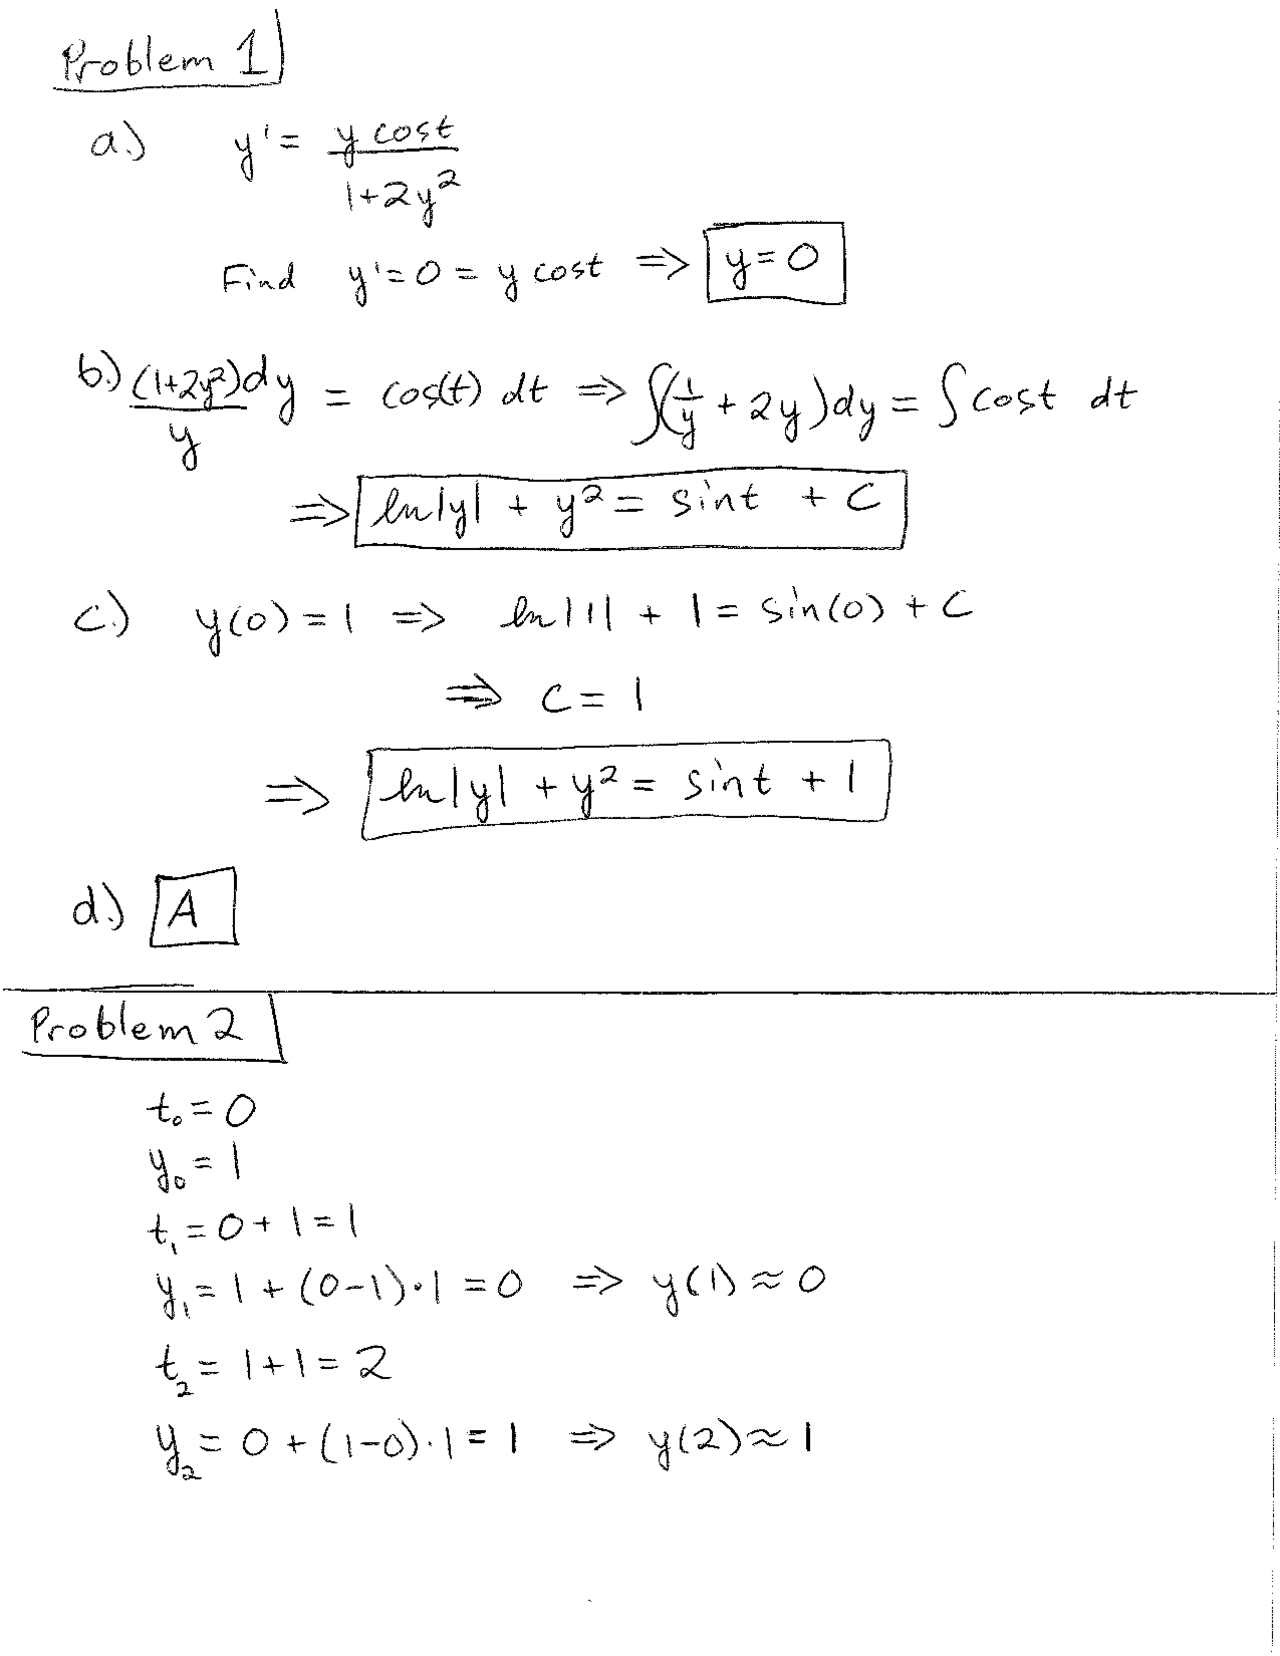 Problem 1
a.) y' = y cost / 1+2y²
Find y'=0 = y cost ⇒ y=0
b.) (1+2y²)dy / y = cos(t) dt ⇒ ∫(1/y + 2y)dy = ∫cost dt
⇒ ln|y| + y² = sint + C
c.) y(0)=1 ⇒ ln|1| + 1 = sin(0) + C
⇒ C = 1
⇒ ln|y| + y² = sint + 1
d.) A
Problem 2
t₀ = 0
y₀ = 1
t₁ = 0+1=1
y₁ = 1 + (0-1)·1 = 0 ⇒ y(1) ≈ 0
t₂ = 1+1=2
y₂ = 0 + (1-0)·1 = 1 ⇒ y(2) ≈ 1